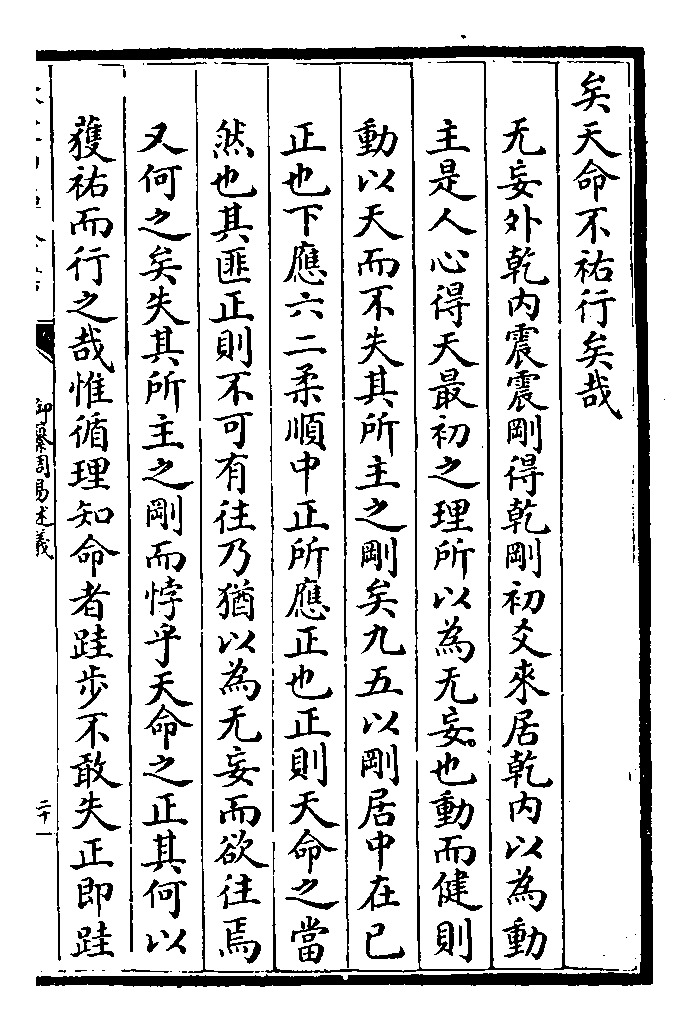 矣天命不祐行矣哉
无妄外乾内震震剛得乾剛初爻來居乾内以為動
主是人心得天最初之理所以為无妄也動而健則
動以天而不失其所主之剛矣九五以剛居中在已
正也下應六二柔順中正所應正也正則天命之當
然也其匪正則不可有往乃猶以為无妄而欲往焉
又何之矣失其所主之剛而悖乎天命之正其何以
獲祐而行之哉惟循理知命者跬步不敢失正即跬
御纂周易述義
二十一